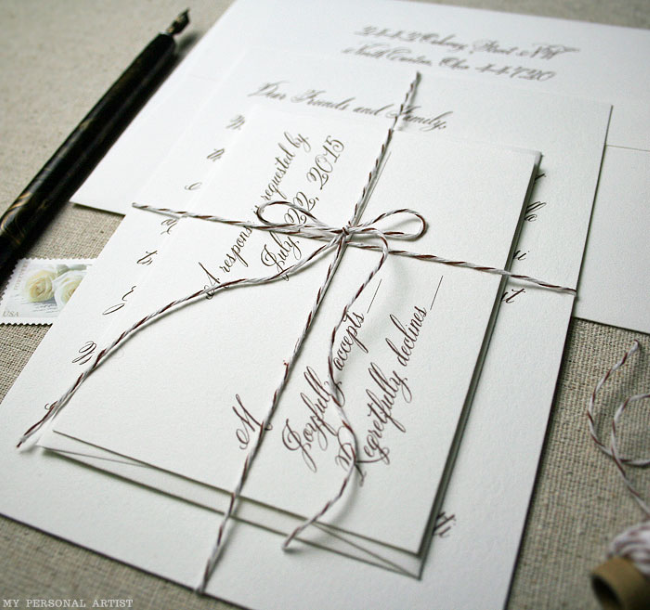 Street NW
North Canton, Ohio 44720
Dear Friends and Family,
A response is requested by
July 22, 2015
M
Joyfully accepts __
Regretfully declines __
USA
MY PERSONAL ARTIST